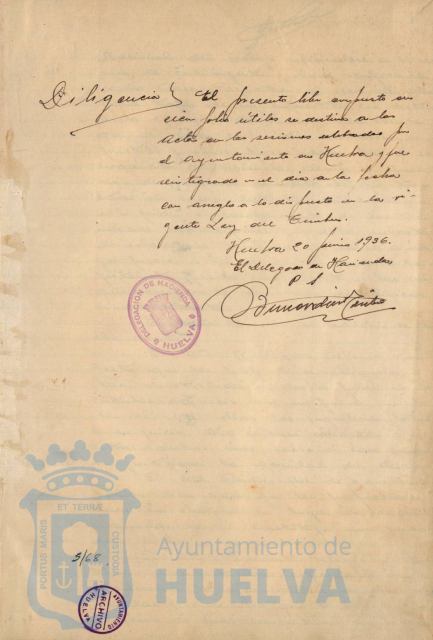 Diligencia } El presente libro compuesto de
cien folios útiles se destina a las
actas de las sesiones celebradas por
el Ayuntamiento de Huelva y fue
reintegrado en el día de la fecha
con arreglo a lo dispuesto en la vi-
gente Ley del Timbre.
Huelva 20 junio 1936.
El Delegado de Hacienda
P S
DELEGACION DE HACIENDA
HUELVA
PORTUS MARIS ET TERRÆ CUSTODIA
S/68
Ayuntamiento de
HUELVA
AYUNTAMIENTO
ARCHIVO
HUELVA